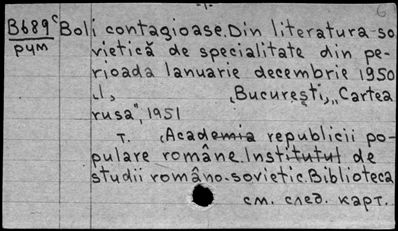 6
Б689 Boli contagioase. Din literatura so-
рум vietică de specialitate din pe-
rioada Ianuarie decembrie 1950
.I, ,Bucureşti,, „Cartea
rusa", 1951
т. ,Academia republicii po-
pulare române. Institutul de
studii româno-sovietic. Biblioteca
см. след. карт.